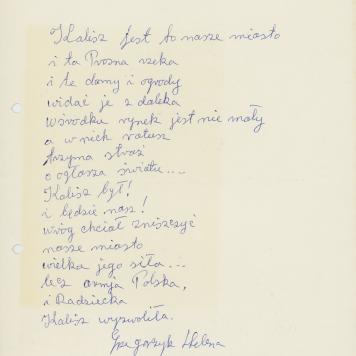 Kalisz jest to nasze miasto
i ta Prosna rzeka
i te domy i ogrody
widać je z daleka
wśrodku rynek jest nie mały
a w nich ratusz
trzyma straż
o ogłasza światu...
Kalisz był!
i będzie nasz!
wróg chciał zniszczyć
nasze miasto
wielka jego siła...
lecz armja Polska,
i Radziecka
Kalisz wyzwoliła.
Grzegorzyk Helena